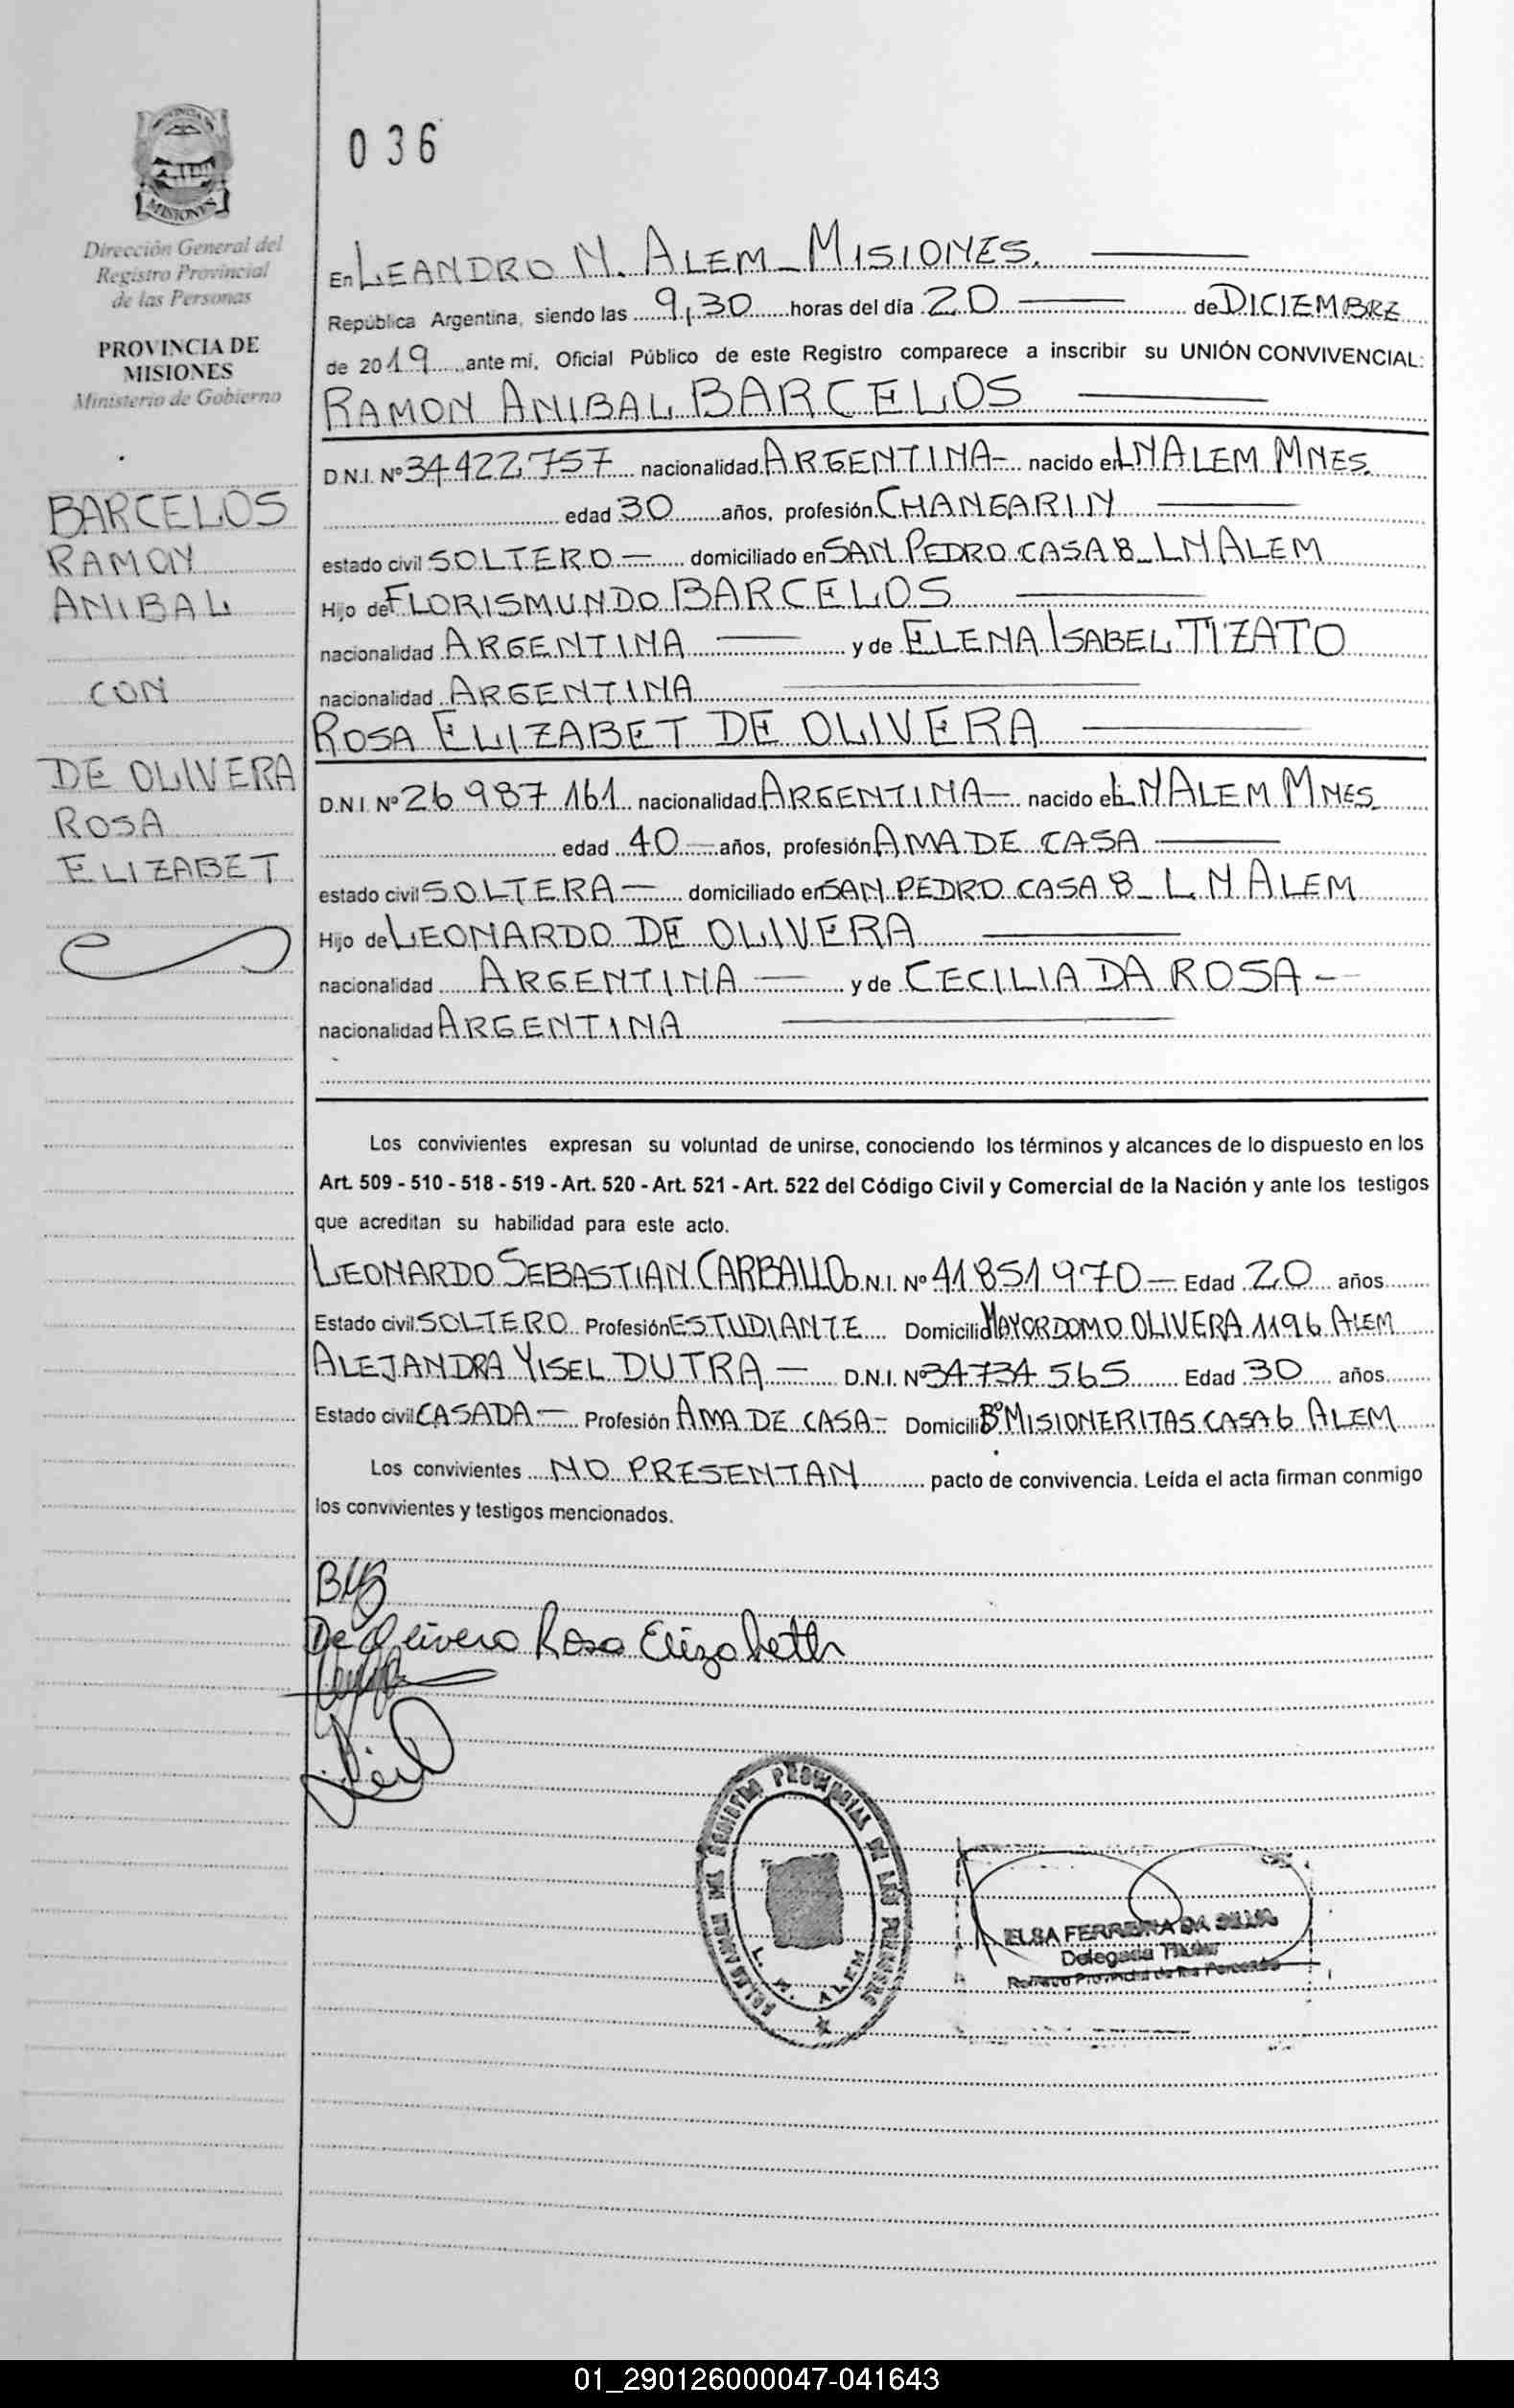 036
MISIONES
Dirección General del
Registro Provincial
de las Personas
PROVINCIA DE
MISIONES
Ministerio de Gobierno
BARCELOS
RAMON
ANIBAL
CON
DE OLIVERA
ROSA
ELIZABET
En LEANDRO N. ALEM_MISIONES.
República Argentina, siendo las 9,30 horas del día 20 de DICIEMBRE
de 2019 ante mí, Oficial Público de este Registro comparece a inscribir su UNIÓN CONVIVENCIAL:
RAMON ANIBAL BARCELOS
D.N.I. Nº 34422757 nacionalidad ARGENTINA- nacido en LNALEM MNES.
edad 30 años, profesión CHANGARIN
estado civil SOLTERO- domiciliado en SAN PEDRO CASA 8_ LNALEM
Hijo de FLORISMUNDO BARCELOS
nacionalidad ARGENTINA y de ELENA ISABEL TIZATO
nacionalidad ARGENTINA
ROSA ELIZABET DE OLIVERA
D.N.I. Nº 26 987 161 nacionalidad ARGENTINA- nacido en LNALEM MNES
edad 40- años, profesión AMA DE CASA
estado civil SOLTERA- domiciliado en SAN PEDRO CASA 8_ L N ALEM
Hijo de LEONARDO DE OLIVERA
nacionalidad ARGENTINA- y de CECILIA DA ROSA-
nacionalidad ARGENTINA
Los convivientes expresan su voluntad de unirse, conociendo los términos y alcances de lo dispuesto en los
Art. 509 - 510 - 518 - 519 - Art. 520 - Art. 521 - Art. 522 del Código Civil y Comercial de la Nación y ante los testigos
que acreditan su habilidad para este acto.
LEONARDO SEBASTIAN CARBALLO D.N.I. Nº 41851970- Edad 20 años
Estado civil SOLTERO Profesión ESTUDIANTE Domicilio MAYORDOMO OLIVERA 1196 ALEM
ALEJANDRA YISEL DUTRA- D.N.I. Nº 34734 565 Edad 30 años
Estado civil CASADA- Profesión AMA DE CASA- Domicilio Bº MISIONERITAS CASA 6 ALEM
Los convivientes NO PRESENTAN pacto de convivencia. Leída el acta firman conmigo
los convivientes y testigos mencionados.
De Olivera Rosa Elizabeth
DELEGACION DEL REGISTRO PROVINCIAL DE LAS PERSONAS
L. N. ALEM
ELSA FERREIRA DA SILVA
Delegada Titular
Registro Provincial de las Personas
01_290126000047-041643